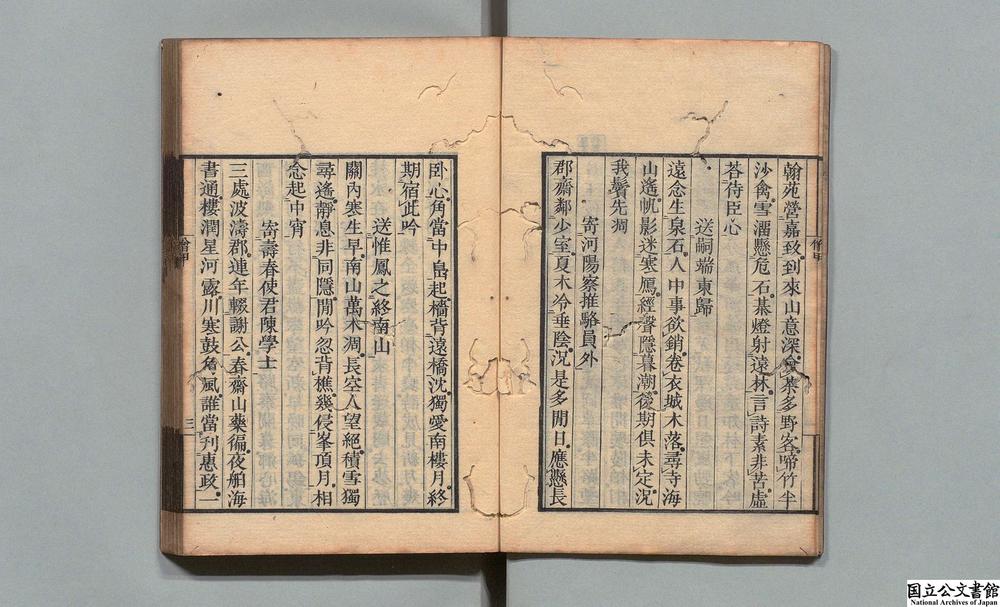 翰苑營嘉致到來山意深會棊多野客啼竹半
沙禽雪溜懸危石碁燈射遠林言詩素非苦虛
荅侍臣心
送嗣端東歸
遠念生泉石人中事欲銷卷衣城木落尋寺海
山遙帆影迷寒鴈經聲隱暮潮後期俱未定況
我鬢先凋
寄河陽察推駱員外
郡齋鄰少室夏木冷垂陰況是多閒日應懸長
臥心角當中島起檣背遠橋沈獨愛南樓月終
期宿此吟
送惟鳳之終南山
關內寒生早南山萬木凋長空人望絕積雪獨
尋遙靜息非同隱閒吟忽背樵幾侵峯頂月相
念起中宵
寄壽春使君陳學士
三處波濤郡連年輟謝公春齋山藥徧夜舶海
書通樓潤星河露川寒鼓角風誰當刊惠政一
三
国立公文書館
National Archives of Japan